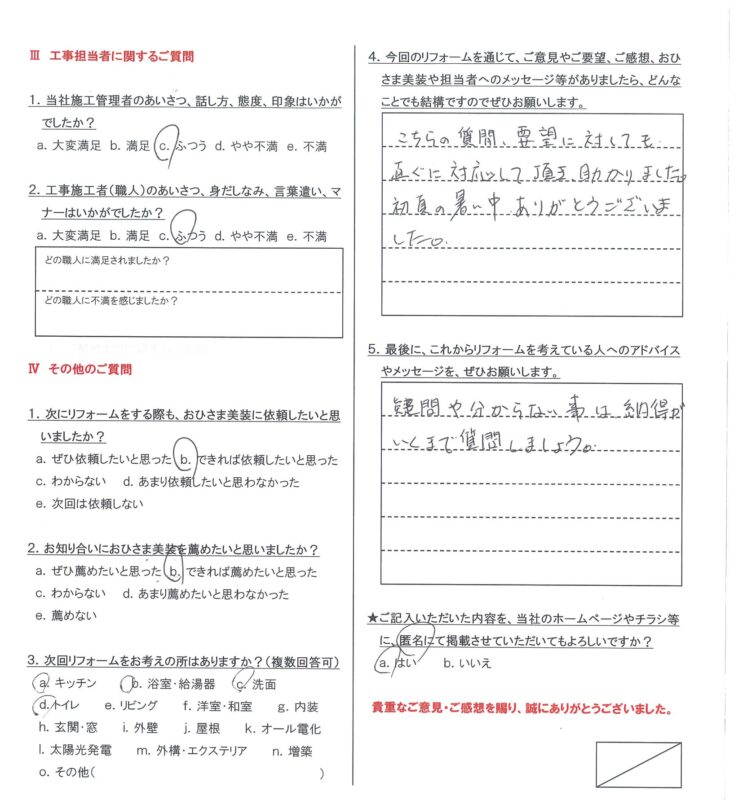 Ⅲ 工事担当者に関するご質問
1. 当社施工管理者のあいさつ、話し方、態度、印象はいかが
でしたか？
a. 大変満足 b. 満足 c. ふつう d. やや不満 e. 不満
2. 工事施工者(職人)のあいさつ、身だしなみ、言葉遣い、マ
ナーはいかがでしたか？
a. 大変満足 b. 満足 c. ふつう d. やや不満 e. 不満
どの職人に満足されましたか？
どの職人に不満を感じましたか？
Ⅳ その他のご質問
1. 次にリフォームをする際も、おひさま美装に依頼したいと思
いましたか？
a. ぜひ依頼したいと思った b. できれば依頼したいと思った
c. わからない d. あまり依頼したいと思わなかった
e. 次回は依頼しない
2. お知り合いにおひさま美装を薦めたいと思いましたか？
a. ぜひ薦めたいと思った b. できれば薦めたいと思った
c. わからない d. あまり薦めたいと思わなかった
e. 薦めない
3. 次回リフォームをお考えの所はありますか？(複数回答可)
a. キッチン b. 浴室・給湯器 c. 洗面
d. トイレ e. リビング f. 洋室・和室 g. 内装
h. 玄関・窓 i. 外壁 j. 屋根 k. オール電化
l. 太陽光発電 m. 外構・エクステリア n. 増築
o. その他( )
4. 今回のリフォームを通じて、ご意見やご要望、ご感想、おひ
さま美装や担当者へのメッセージ等がありましたら、どんな
ことでも結構ですのでぜひお願いします。
こちらの質問、要望に対しても
直ぐに対応して頂き助かりました。
初夏の暑い中ありがとうございま
した。
5. 最後に、これからリフォームを考えている人へのアドバイス
やメッセージを、ぜひお願いします。
疑問や分からない事は納得が
いくまで質問しましょう。
★ご記入いただいた内容を、当社のホームページやチラシ等
に、匿名にて掲載させていただいてもよろしいですか？
a. はい b. いいえ
貴重なご意見・ご感想を賜り、誠にありがとうございました。